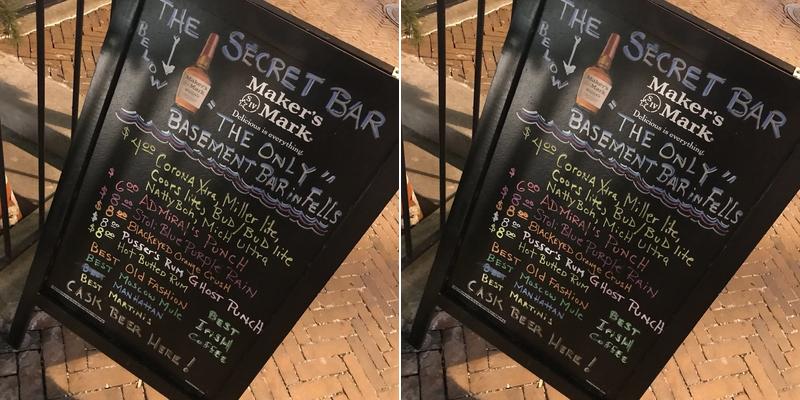 THE SECRET BAR
BELOW
Maker's Mark
SIV
Maker's Mark
Delicious is everything.
"THE ONLY"
BASEMENT BAR in FELLS
$4.00 Corona Xtra, Miller lite,
Coors lite, Bud/Bud lite
NattyBoh, Mich Ultra
$6.00 ADMIRAL'S PUNCH
$8.00 Stoli Blue Purple Rain
$8.00 BLACKEYED Orange Crush
$8.00 Pusser's Rum GHOST PUNCH
$8.00 Hot Buttered Rum
BEST OLD FASHION
BEST MOSCOW MULE
BEST MANHATTAN
BEST MARTINI'S
BEST IRISH COFFEE
CASK BEER HERE!
THE SECRET BAR
BELOW
Maker's Mark
SIV
Maker's Mark
Delicious is everything.
"THE ONLY"
BASEMENT BAR in FELLS
$4.00 Corona Xtra, Miller lite,
Coors lite, Bud/Bud lite
NattyBoh, Mich Ultra
$6.00 ADMIRAL'S PUNCH
$8.00 Stoli Blue Purple Rain
$8.00 BLACKEYED Orange Crush
$8.00 Pusser's Rum GHOST PUNCH
$8.00 Hot Buttered Rum
BEST OLD FASHION
BEST MOSCOW MULE
BEST MANHATTAN
BEST MARTINI'S
BEST IRISH COFFEE
CASK BEER HERE!